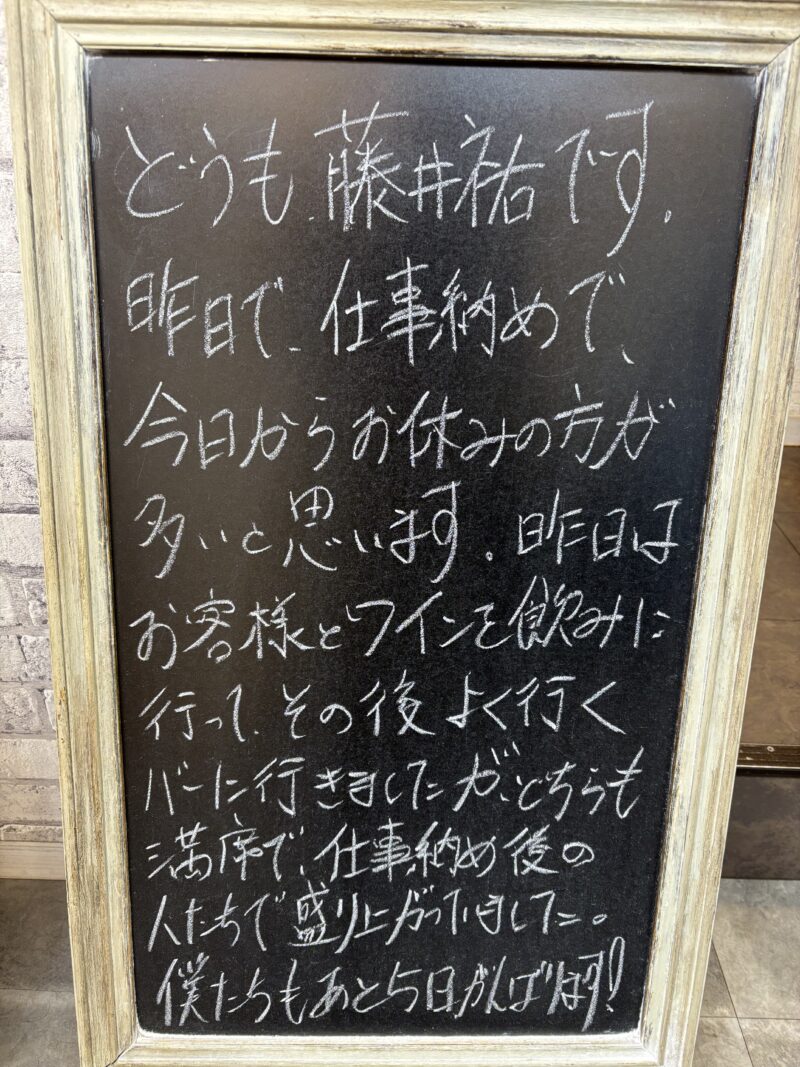 どうも、藤井祐です。
昨日で、仕事納めで、
今日からお休みの方が
多いと思います。昨日は
お客様とワインを飲みに
行って、その後よく行く
バーに行きましたが、どちらも
満席で、仕事納め後の
人たちで盛り上がっていました。
僕たちもあと5日がんばります!